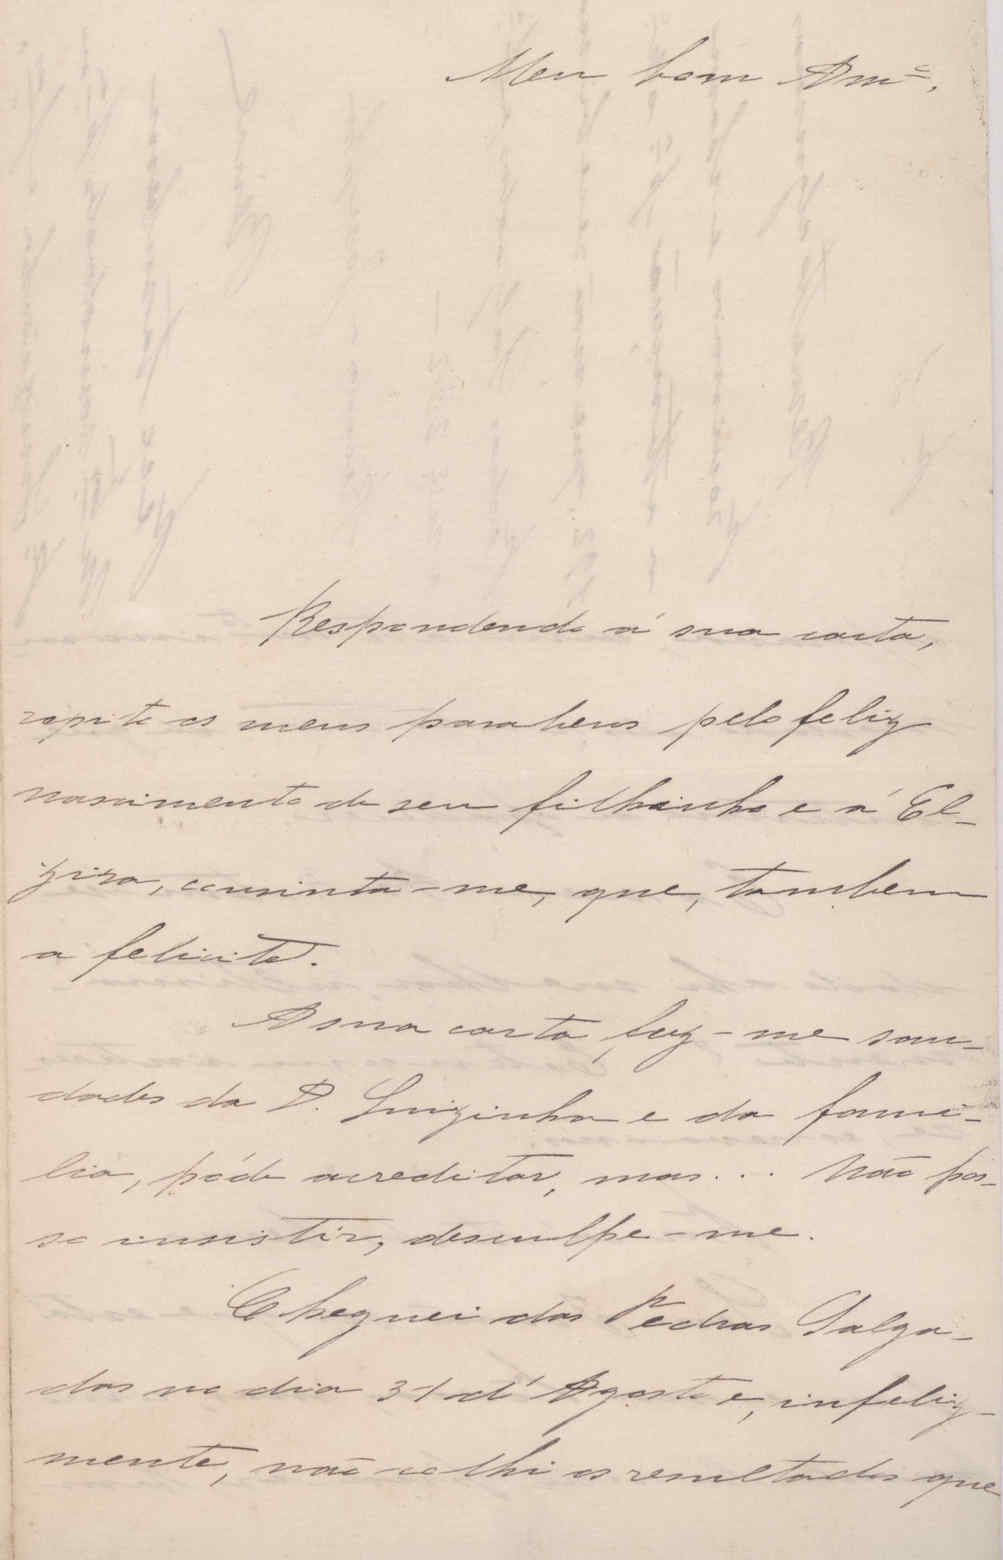 Meu bom Amº,
Respondendo á sua carta,
repito os meus parabens pelo feliz
nascimento de seu filhinho e á El-
zira, consinta-me, que, tambem
a felicite.
A sua carta, fez-me sau-
dades da D. Luizinha e da fami-
lia, póde acreditar, mas... Não pos-
so insistir, desculpe-me.
Cheguei das Pedras Salga-
das no dia 31 d'Agosto e, infeliz-
mente, não colhi os resultados que